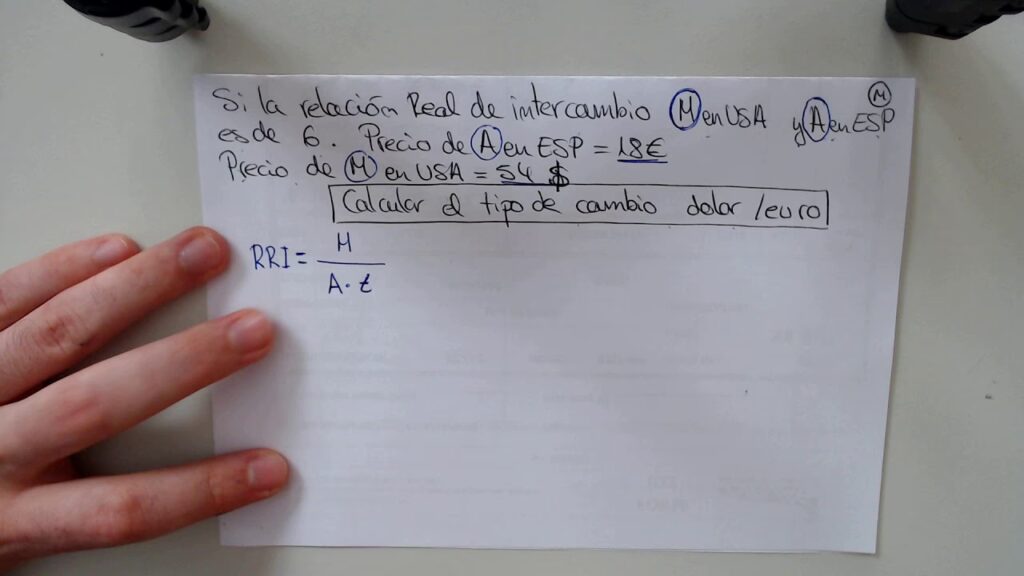 Si la relación Real de intercambio M en USA y A en ESP
M
es de 6. Precio de A en ESP = 18€
Precio de M en USA = 54 $
Calcular el tipo de cambio dolar /euro
RRI = M
A · t